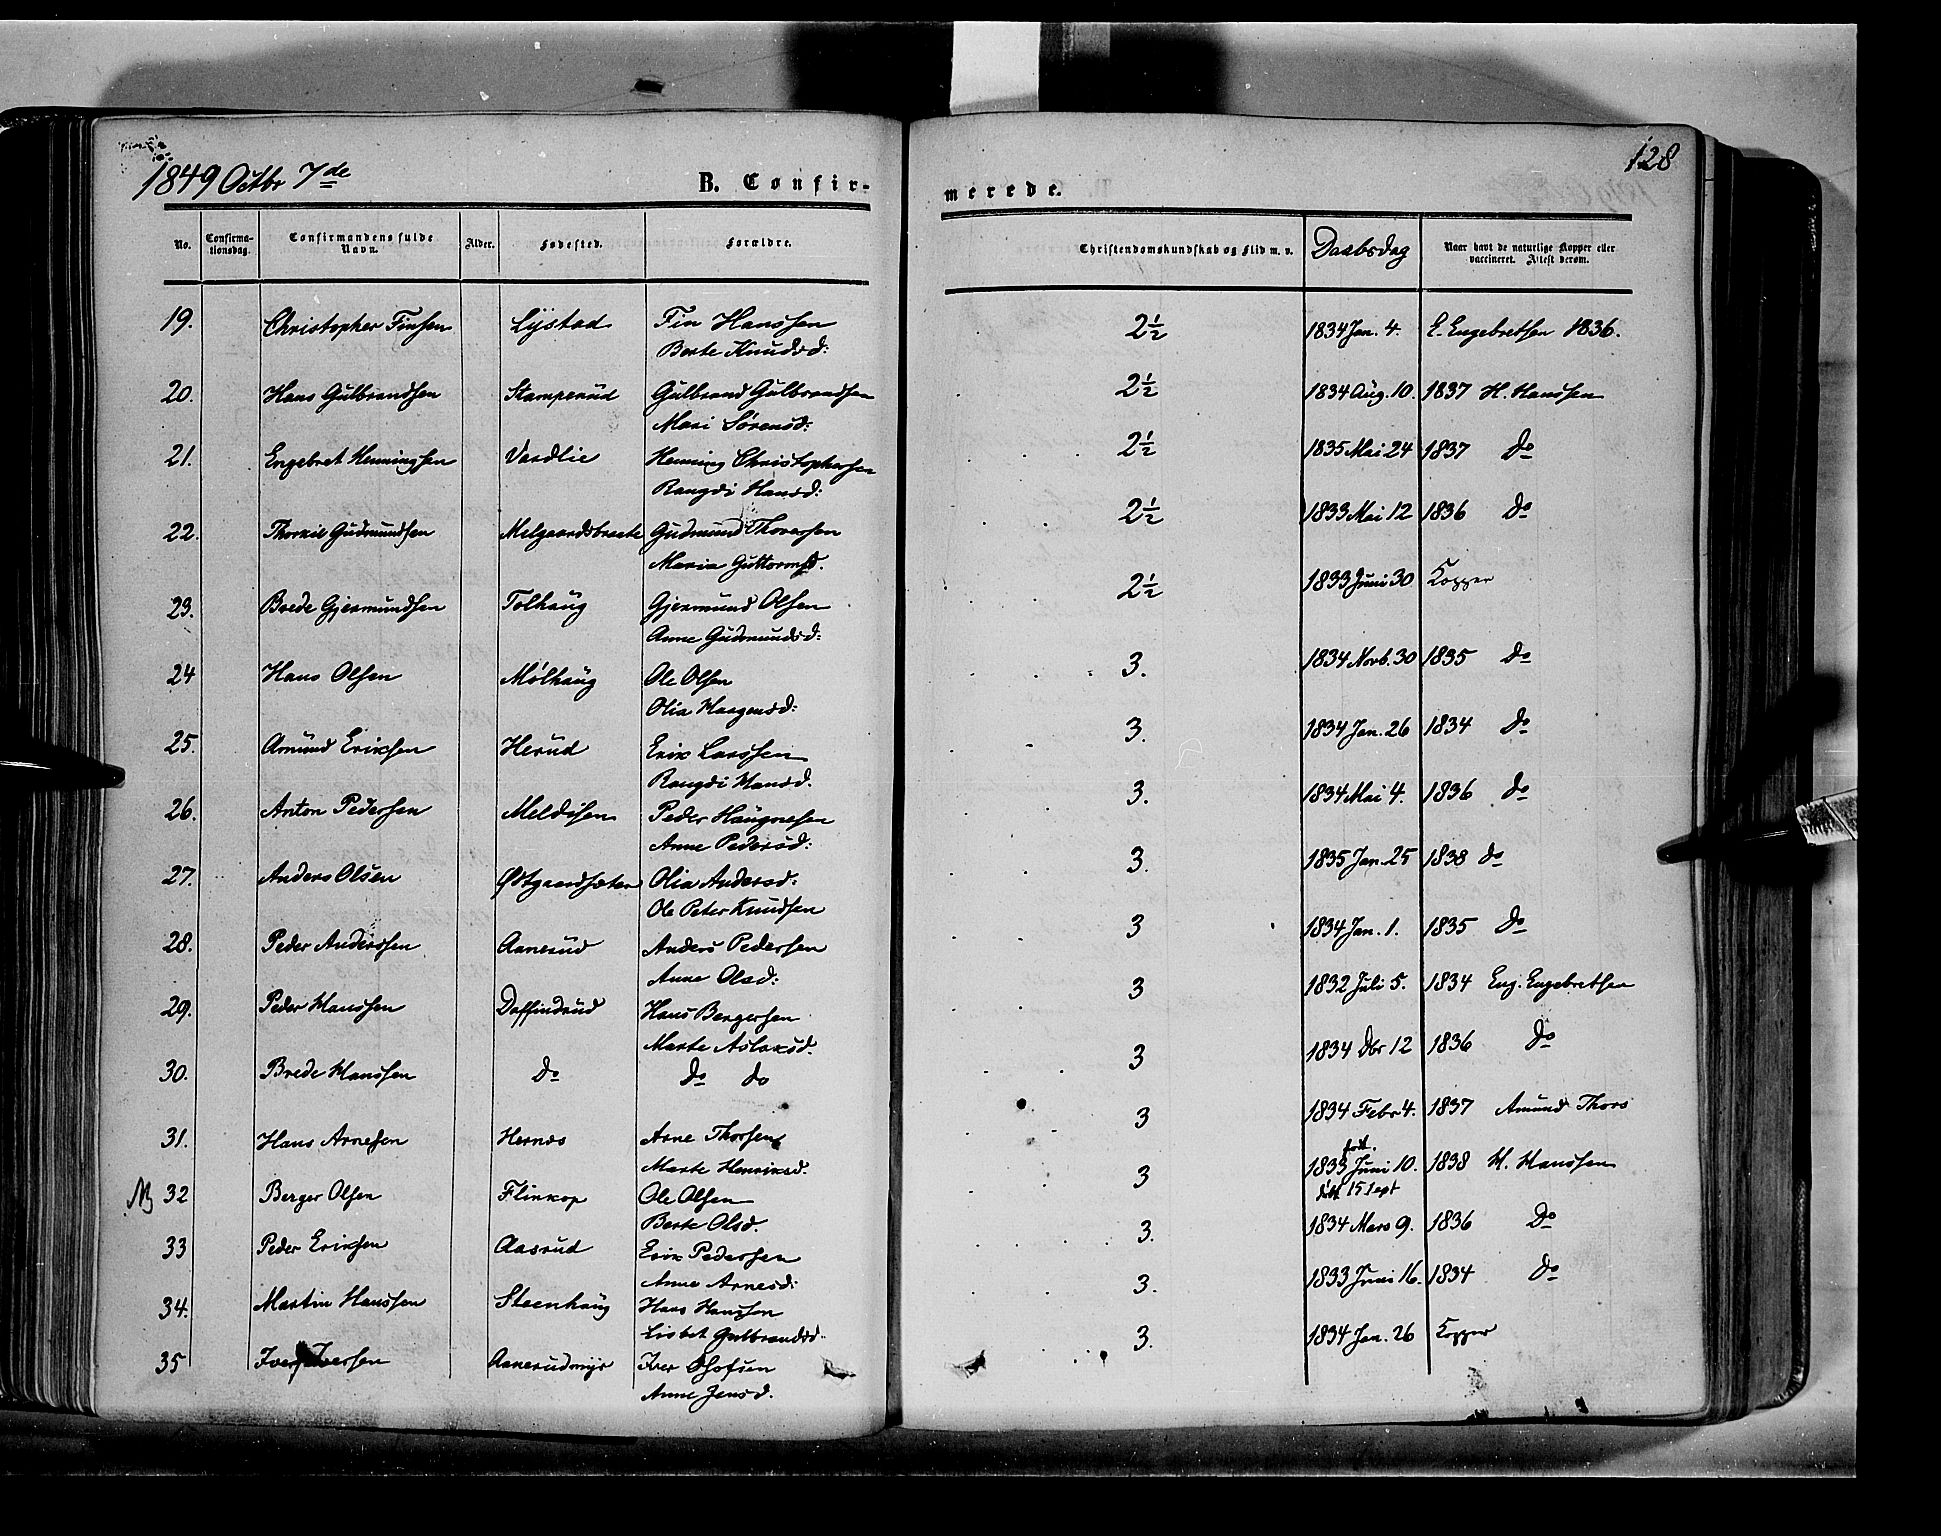 128
1849 Octbr 7de
B. Confir-
merede.
No. Confirma-tionsdag. Confirmandens fulde Navn. Alder. Fødested. Forældre. Christendomskundskab og Flid m. v. Daabsdag Naar havt de naturlige Kopper eller vaccineret. Attest derom.
19. Christopher Finsen Lystad Fin Hanssen 2½ 1834 Jan. 4. E. Engebretsen 1836.
Berte Knudsd:
20. Hans Gulbrandsen Stamperud Gulbrand Gulbrandsen 2½ 1834 Aug. 10. 1837 H. Hanssen
Mari Sørensd:
21. Engebret Henningsen Vardlie Henning Christophersen 2½ 1835 Mai 24 1837 Do
Rangdi Hansd:
22. Thorkil Gudmundsen Melgaardsbraate Gudmund Thoressen 2½ 1833 Mai 12 1836 Do
Maria Guttormsd.
23. Brede Gjermundsen Tolhaug Gjermund Olsen 2½ 1833 Juni 30 Kopper
Anne Gudmundsd:
24 Hans Olsen Mølhaug Ole Olsen 3. 1834 Novb. 30 1835 Do
Olia Haagensd:
25. Amund Eriksen Herud Erik Larssen 3. 1834 Jan. 26 1834 Do
Rangdi Hansd.
26. Anton Pedersen Meldisen Peder Haugnesen 3. 1834 Mai 4. 1836 Do
Anne Pedersd:
27. Anders Olsen Østgaardsæter Olia Andersd: 3. 1835 Jan. 25 1838 do
Ole Peter Knudsen
28. Peder Anderssen Aanerud Anders Pedersen 3 1834 Jan. 1. 1835 Do
Anne Olsd:
29. Peder Hanssen Daffindrud Hans Bergersen 3 1832 Juli 5. 1834 Eng. Engebretsen
Marte Aslaksd.
30. Brede Hanssen Do Do do 3 1834 Dbr 12 1836 Do
31. Hans Arnesen Hernes Arne Thorsen 3 1834 Febr 4. 1837 Amund Thors
Marte Henriksd.
NB 32 Berger Olsen Flinkop Ole Olsen 3 født. 1833 Juni 10. 1838 H. Hanssen
Berte Olsd. døbt 15 Sept
33 Peder Eriksen Aasrud Erik Pedersen 3. 1834 Mars 9. 1836 Do
Anne Arnesd:
34. Martin Hanssen Steenhaug Hans Hanssen 3. 1833 Juni 16. 1834 Do
Lisbet Gulbrandsd.
35 Iver Iversen Aanerudmyr Iver Olofsen 3. 1834 Jan. 26 Kopper
Anne Jensd.